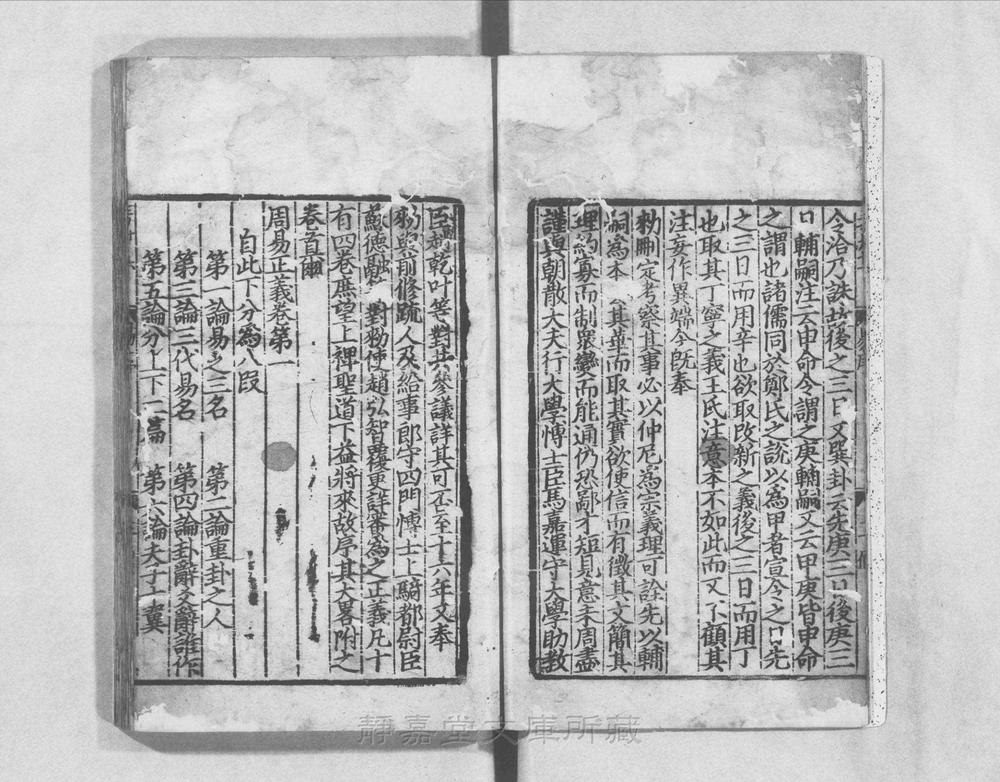 令洽乃誅共後之三日又巽卦云先庚三日後庚三
日輔嗣注云申命令謂之庚輔嗣又云甲庚皆申命
之謂也諸儒同於鄭氏之說以爲甲者宣令之日先
之三日而用辛也欲取改新之義後之三日而用丁
也取其丁寧之義王氏注意本不如此而又不顧其
注妄作異端今旣奉
勑刪定考察其事必以仲尼爲宗義理可詮先以輔
嗣爲本 其華而取其實欲使信而有徵其文簡其
理約寡而制衆變而能通仍恐鄙才短見意未周盡
謹與朝散大夫行大學博士臣馬嘉運守大學助教
臣趙乾叶等對共參議詳其可否至十六年又奉
勑與前修疏人及給事郎守四門博士上騎都尉臣
蘇德融 對勑使趙弘智覆更詳審爲之正義凡十
有四卷庶望上裨聖道下益將來故序其大畧附之
卷首爾
周易正義卷第一
自此下分爲八段
第一論易之三名 第二論重卦之人
第三論三代易名 第四論卦辭爻辭誰作
第五論分上下二篇 第六論夫子十翼
靜嘉堂文庫所藏